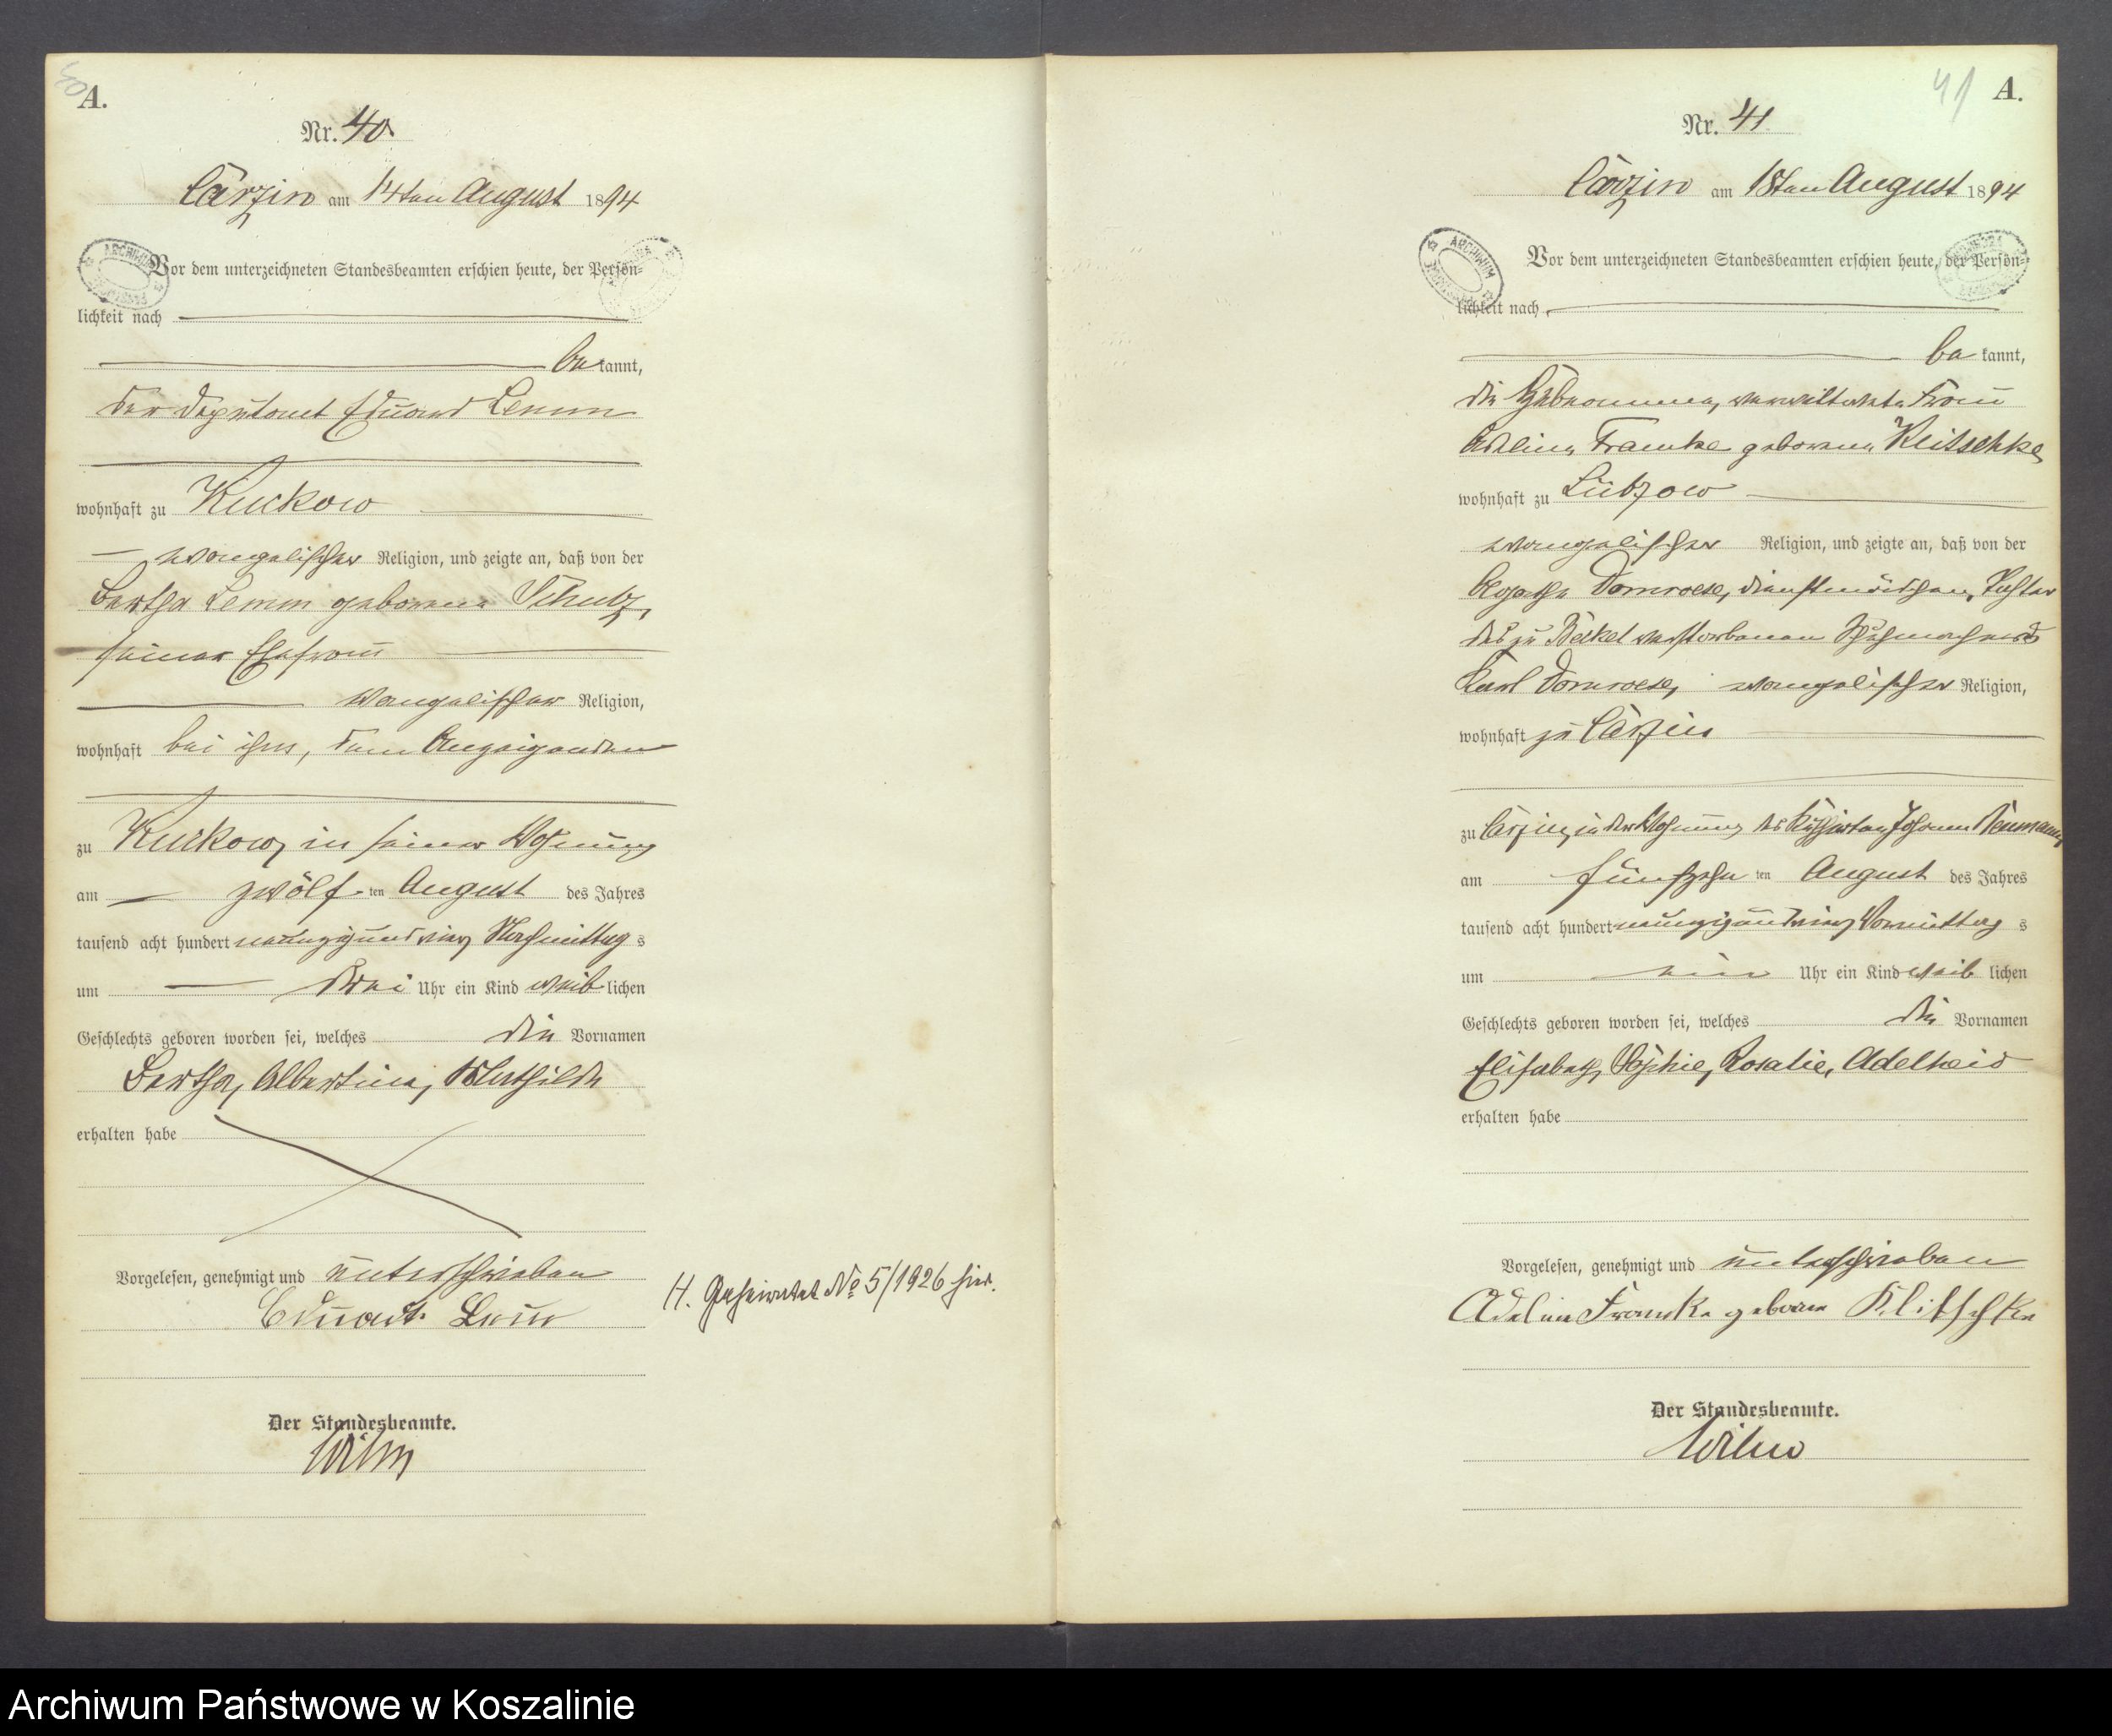 40
A.
Nr. 40.
Cärzin am 14ten August 1894
Vor dem unterzeichneten Standesbeamten erschien heute, der Persön-
lichkeit nach
bekannt,
der Deputant Eduard Lemm
wohnhaft zu Kuckow
evangelischer Religion, und zeigte an, daß von der
Bertha Lemm geborene Schulz,
seiner Ehefrau
evangelischer Religion,
wohnhaft bei ihm, dem Anzeigenden
zu Kuckow, in seiner Wohnung
am zwölften August des Jahres
tausend acht hundert neunzig und vier Nachmittags
um drei Uhr ein Kind weiblichen
Geschlechts geboren worden sei, welches die Vornamen
Bertha, Albertine, Klothilde
erhalten habe
Vorgelesen, genehmigt und unterschrieben
Eduard Lemm
H. Geheiratet No 5/1926 hier.
Der Standesbeamte.
Wilm
41
A.
Nr. 41
Cärzin am 18ten August 1894
ARCHIWUM
Vor dem unterzeichneten Standesbeamten erschien heute, der Persön-
lichkeit nach
bekannt,
die Hebeamme, verwittwete Frau
Adeline Framke geborene Klitschke,
wohnhaft zu Lübzow
evangelischer Religion, und zeigte an, daß von der
Agathe Domroese, Dienstmädchen, Tochter
des zu Beckel verstorbenen Schuhmachers
Karl Domroese, evangelischer Religion,
wohnhaft zu Cärzin
zu Cärzin, in der Wohnung des Johann Neumann,
am fünfzehnten August des Jahres
tausend acht hundert neunzig und vier Vormittags
um ein Uhr ein Kind weiblichen
Geschlechts geboren worden sei, welches die Vornamen
Elisabeth, Sophie, Rosalie, Adelheid
erhalten habe
Vorgelesen, genehmigt und unterschrieben
Adeline Framke geborne Klitschke
Der Standesbeamte.
Wilm
Archiwum Państwowe w Koszalinie